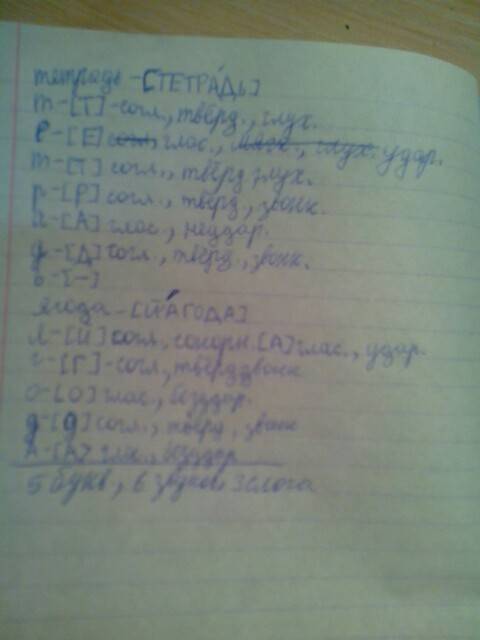 тетрадь-[ТЕТРА́ДЬ]
т-[Т]-согл., твёрд., глух.
е-[Е] согл, глас., мягк., глух. удар.
т-[Т] согл., твёрд глух.
р-[Р] согл., твёрд, звонк.
а-[А] глас., неудар.
д-[Д] согл., твёрд., звонк.
ь-[-]
ягода-[Й́АГОДА]
я-[Й] согл, сонорн. [А] глас., удар.
г-[Г]-согл, твёрд звонк
о-[О] глас., безудар.
д-[д] согл., твёрд, звонк
А-[А] глас., безудар
5 букв, 6 звуков, 3 слога